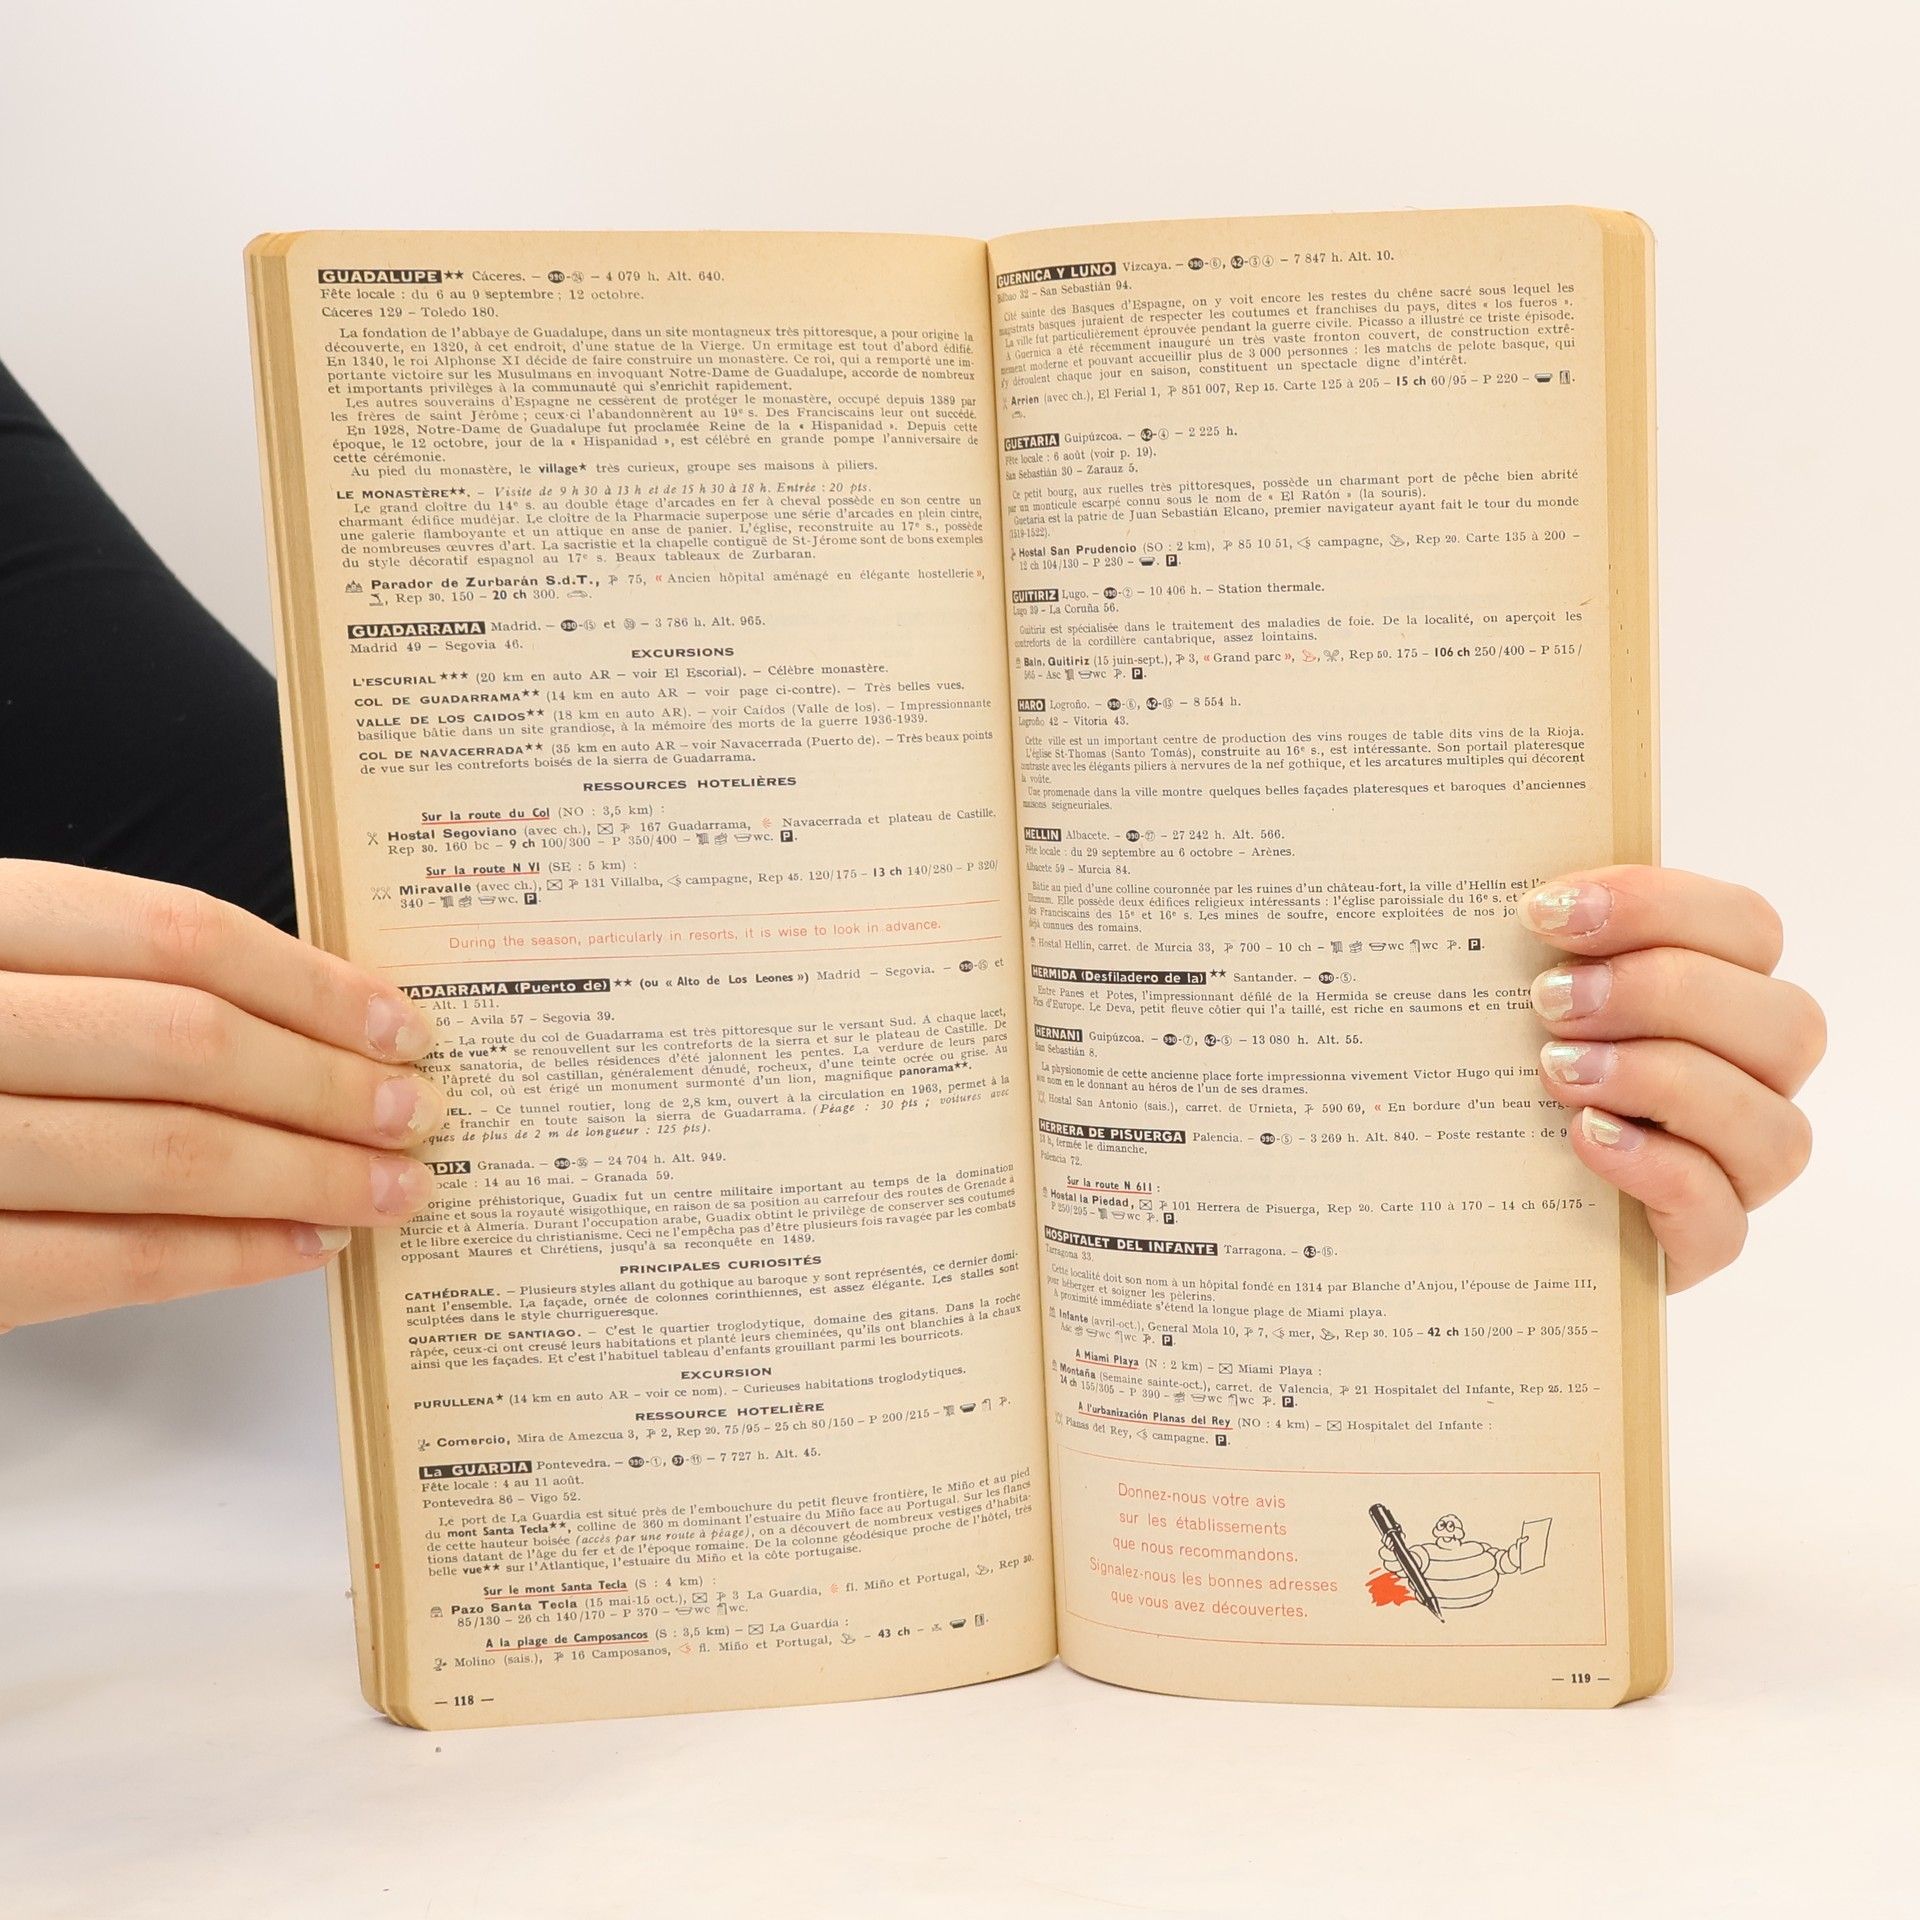 GUADALUPE ★★ Cáceres. – 990-24 – 4 079 h. Alt. 640.
Fête locale : du 6 au 9 septembre ; 12 octobre.
Cáceres 129 – Toledo 180.
La fondation de l'abbaye de Guadalupe, dans un site montagneux très pittoresque, a pour origine la
découverte, en 1320, à cet endroit, d'une statue de la Vierge. Un ermitage est tout d'abord édifié.
En 1340, le roi Alphonse XI décide de faire construire un monastère. Ce roi, qui a remporté une im-
portante victoire sur les Musulmans en invoquant Notre-Dame de Guadalupe, accorde de nombreux
et importants privilèges à la communauté qui s'enrichit rapidement.
Les autres souverains d'Espagne ne cessèrent de protéger le monastère, occupé depuis 1389 par
les frères de saint Jérôme ; ceux-ci l'abandonnèrent au 19e s. Des Franciscains leur ont succédé.
En 1928, Notre-Dame de Guadalupe fut proclamée Reine de la « Hispanidad ». Depuis cette
époque, le 12 octobre, jour de la « Hispanidad », est célébré en grande pompe l'anniversaire de
cette cérémonie.
Au pied du monastère, le village★ très curieux, groupe ses maisons à piliers.
LE MONASTÈRE★★. – Visite de 9 h 30 à 13 h et de 15 h 30 à 18 h. Entrée : 20 pts.
Le grand cloître du 14e s. au double étage d'arcades en fer à cheval possède en son centre un
charmant édifice mudéjar. Le cloître de la Pharmacie superpose une série d'arcades en plein cintre,
une galerie flamboyante et un attique en anse de panier. L'église, reconstruite au 17e s., possède
de nombreuses œuvres d'art. La sacristie et la chapelle contiguë de St-Jérome sont de bons exemples
du style décoratif espagnol au 17e s. Beaux tableaux de Zurbaran.
Parador de Zurbarán S.d.T., 75, « Ancien hôpital aménagé en élégante hostellerie »,
Rep 30. 150 – 20 ch 300.
GUADARRAMA Madrid. – 990-15 et 39 – 3 786 h. Alt. 965.
Madrid 49 – Segovia 46.
EXCURSIONS
L'ESCURIAL ★★★ (20 km en auto AR – voir El Escorial). – Célèbre monastère.
COL DE GUADARRAMA★★ (14 km en auto AR – voir page ci-contre). – Très belles vues.
VALLE DE LOS CAIDOS★★ (18 km en auto AR). – voir Caídos (Valle de los). – Impressionnante
basilique bâtie dans un site grandiose, à la mémoire des morts de la guerre 1936-1939.
COL DE NAVACERRADA★★ (35 km en auto AR – voir Navacerrada (Puerto de). – Très beaux points
de vue sur les contreforts boisés de la sierra de Guadarrama.
RESSOURCES HOTELIÈRES
Sur la route du Col (NO : 3,5 km) :
Hostal Segoviano (avec ch.), 167 Guadarrama, Navacerrada et plateau de Castille,
Rep 30. 160 bc – 9 ch 100/300 – P 350/400 – wc. P.
Sur la route N VI (SE : 5 km) :
Miravalle (avec ch.), 131 Villalba, campagne, Rep 45. 120/175 – 13 ch 140/280 – P 320/
340 – wc. P.
During the season, particularly in resorts, it is wise to look in advance.
ADARRAMA (Puerto de) ★★ (ou « Alto de Los Leones ») Madrid – Segovia. – 990-15 et
– Alt. 1 511.
56 – Avila 57 – Segovia 39.
– La route du col de Guadarrama est très pittoresque sur le versant Sud. A chaque lacet,
nts de vue★★ se renouvellent sur les contreforts de la sierra et sur le plateau de Castille. De
breux sanatoria, de belles résidences d'été jalonnent les pentes. La verdure de leurs parcs
l'âpreté du sol castillan, généralement dénudé, rocheux, d'une teinte ocrée ou grise. Au
du col, où est érigé un monument surmonté d'un lion, magnifique panorama★★.
EL. – Ce tunnel routier, long de 2,8 km, ouvert à la circulation en 1963, permet à la
e franchir en toute saison la sierra de Guadarrama. (Péage : 30 pts ; voitures avec
ques de plus de 2 m de longueur : 125 pts).
ADIX Granada. – 990-35 – 24 704 h. Alt. 949.
ocale : 14 au 16 mai. – Granada 59.
origine préhistorique, Guadix fut un centre militaire important au temps de la domination
maine et sous la royauté wisigothique, en raison de sa position au carrefour des routes de Grenade à
Murcie et à Almería. Durant l'occupation arabe, Guadix obtint le privilège de conserver ses coutumes
et le libre exercice du christianisme. Ceci ne l'empêcha pas d'être plusieurs fois ravagée par les combats
opposant Maures et Chrétiens, jusqu'à sa reconquête en 1489.
PRINCIPALES CURIOSITÉS
CATHÉDRALE. – Plusieurs styles allant du gothique au baroque y sont représentés, ce dernier domi-
nant l'ensemble. La façade, ornée de colonnes corinthiennes, est assez élégante. Les stalles sont
sculptées dans le style churrigueresque.
QUARTIER DE SANTIAGO. – C'est le quartier troglodytique, domaine des gitans. Dans la roche
râpée, ceux-ci ont creusé leurs habitations et planté leurs cheminées, qu'ils ont blanchies à la chaux
ainsi que les façades. Et c'est l'habituel tableau d'enfants grouillant parmi les bourricots.
EXCURSION
PURULLENA★ (14 km en auto AR – voir ce nom). – Curieuses habitations troglodytiques.
RESSOURCE HOTELIÈRE
Comercio, Mira de Amezcua 3, 2, Rep 20. 75/95 – 25 ch 80/150 – P 200/215 –
La GUARDIA Pontevedra. – 990-1, 37-11 – 7 727 h. Alt. 45.
Fête locale : 4 au 11 août.
Pontevedra 86 – Vigo 52.
Le port de La Guardia est situé près de l'embouchure du petit fleuve frontière, le Miño et au pied
du mont Santa Tecla★★, colline de 360 m dominant l'estuaire du Miño face au Portugal. Sur les flancs
de cette hauteur boisée (accès par une route à péage), on a découvert de nombreux vestiges d'habita-
tions datant de l'âge du fer et de l'époque romaine. De la colonne géodésique proche de l'hôtel, très
belle vue★★ sur l'Atlantique, l'estuaire du Miño et la côte portugaise.
Sur le mont Santa Tecla (S : 4 km) :
Pazo Santa Tecla (15 mai-15 oct.), 3 La Guardia, fl. Miño et Portugal, Rep 30.
85/130 – 26 ch 140/170 – P 370 – wc wc.
A la plage de Camposancos (S : 3,5 km) – La Guardia :
Molino (sais.), 16 Camposanos, fl. Miño et Portugal, – 43 ch –
— 118 —
GUERNICA Y LUNO Vizcaya. – 990-6, 42-3 4 – 7 847 h. Alt. 10.
Bilbao 32 – San Sebastián 94.
Cité sainte des Basques d'Espagne, on y voit encore les restes du chêne sacré sous lequel les
magistrats basques juraient de respecter les coutumes et franchises du pays, dites « los fueros ».
La ville fut particulièrement éprouvée pendant la guerre civile. Picasso a illustré ce triste épisode.
A Guernica a été récemment inauguré un très vaste fronton couvert, de construction extrê-
mement moderne et pouvant accueillir plus de 3 000 personnes : les matchs de pelote basque, qui
s'y déroulent chaque jour en saison, constituent un spectacle digne d'intérêt.
Arrien (avec ch.), El Ferial 1, 851 007, Rep 15. Carte 125 à 205 – 15 ch 60/95 – P 220 –
GUETARIA Guipúzcoa. – 42-4 – 2 225 h.
Fête locale : 6 août (voir p. 19).
San Sebastián 30 – Zarauz 5.
Ce petit bourg, aux ruelles très pittoresques, possède un charmant port de pêche bien abrité
par un monticule escarpé connu sous le nom de « El Ratón » (la souris).
Guetaria est la patrie de Juan Sebastián Elcano, premier navigateur ayant fait le tour du monde
(1519-1522).
Hostal San Prudencio (SO : 2 km), 85 10 51, campagne, Rep 20. Carte 135 à 200 –
12 ch 104/130 – P 230 – P.
GUITIRIZ Lugo. – 990-2 – 10 406 h. – Station thermale.
Lugo 39 – La Coruña 56.
Guitiriz est spécialisée dans le traitement des maladies de foie. De la localité, on aperçoit les
contreforts de la cordillère cantabrique, assez lointains.
Baln. Guitiriz (15 juin-sept.), 3, « Grand parc », Rep 50. 175 – 106 ch 250/400 – P 515/
565 – Asc wc P.
HARO Logroño. – 990-6, 42-13 – 8 554 h.
Logroño 42 – Vitoria 43.
Cette ville est un important centre de production des vins rouges de table dits vins de la Rioja.
L'église St-Thomas (Santo Tomás), construite au 16e s., est intéressante. Son portail plateresque
contraste avec les élégants piliers à nervures de la nef gothique, et les arcatures multiples qui décorent
la voûte.
Une promenade dans la ville montre quelques belles façades plateresques et baroques d'anciennes
maisons seigneuriales.
HELLIN Albacete. – 990-27 – 27 242 h. Alt. 566.
Fête locale : du 29 septembre au 6 octobre – Arènes.
Albacete 59 – Murcia 84.
Bâtie au pied d'une colline couronnée par les ruines d'un château-fort, la ville d'Hellín est
Illunum. Elle possède deux édifices religieux intéressants : l'église paroissiale du 16e s. et
des Franciscains des 15e et 16e s. Les mines de soufre, encore exploitées de nos jo
déjà connues des romains.
Hostal Hellín, carret. de Murcia 33, 700 – 10 ch – wc wc P.
HERMIDA (Desfiladero de la) ★★ Santander. – 990-5.
Entre Panes et Potes, l'impressionnant défilé de la Hermida se creuse dans les contre
Pics d'Europe. Le Deva, petit fleuve côtier qui l'a taillé, est riche en saumons et en truit
HERNANI Guipúzcoa. – 990-7, 42-5 – 13 080 h. Alt. 55.
San Sebastián 8.
La physionomie de cette ancienne place forte impressionna vivement Victor Hugo qui im
son nom en le donnant au héros de l'un de ses drames.
Hostal San Antonio (sais.), carret. de Urnieta, 590 69, « En bordure d'un beau verg
HERRERA DE PISUERGA Palencia. – 990-5 – 3 269 h. Alt. 840. – Poste restante : de 9
13 h, fermée le dimanche.
Palencia 72.
Sur la route N 611 :
Hostal la Piedad, 101 Herrera de Pisuerga, Rep 20. Carte 110 à 170 – 14 ch 65/175 –
P 250/205 – wc P.
HOSPITALET DEL INFANTE Tarragona. – 43-15.
Tarragona 33.
Cette localité doit son nom à un hôpital fondé en 1314 par Blanche d'Anjou, l'épouse de Jaime III,
pour héberger et soigner les pèlerins.
A proximité immédiate s'étend la longue plage de Miami playa.
Infante (avril-oct.), General Mola 10, 7, mer, Rep 30. 105 – 42 ch 150/200 – P 305/355 –
Asc wc wc P.
A Miami Playa (N : 2 km) – Miami Playa :
Montaña (Semaine sainte-oct.), carret. de Valencia, 21 Hospitalet del Infante, Rep 25. 125 –
24 ch 155/305 – P 390 – wc wc P.
A l'urbanización Planas del Rey (NO : 4 km) – Hospitalet del Infante :
Planas del Rey, campagne. P.
Donnez-nous votre avis
sur les établissements
que nous recommandons.
Signalez-nous les bonnes adresses
que vous avez découvertes.
— 119 —